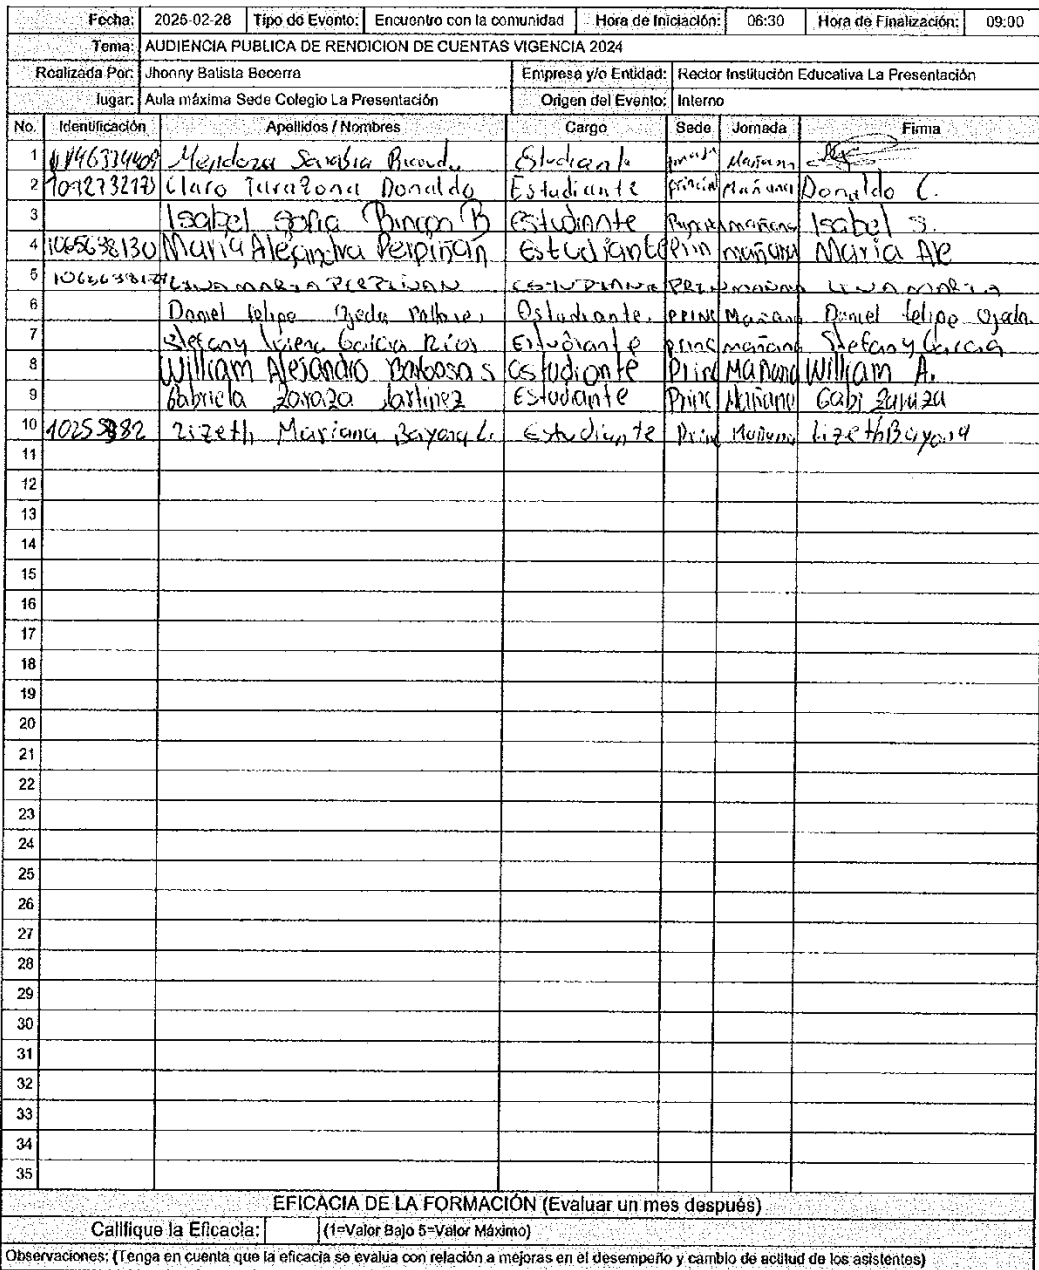 Fecha: 2025-02-28 Tipo de Evento: Encuentro con la comunidad Hora de Iniciación: 06:30 Hora de Finalización: 09:00
Tema: AUDIENCIA PUBLICA DE RENDICION DE CUENTAS VIGENCIA 2024
Realizada Por: Jhonny Batista Becerra Empresa y/o Entidad: Rector Institución Educativa La Presentación
lugar: Aula máxima Sede Colegio La Presentación Origen del Evento: Interno
No. Identificación Apellidos / Nombres Cargo Sede Jornada Firma
1 Mendoza Sarabia Estudiante Mañana
2 Claro Tarazona Donaldo Estudiante Mañana Donaldo C.
3 Isabel Sofia Rincon B Estudiante mañana Isabel S.
4 1065638130 Maria Alejandra Perpiñan Estudiante Prin mañana Maria Ale
5 LINA MARIA PERPIÑAN PRIN MAÑANA LINA MARIA
6 Daniel felipe Ojeda Estudiante. PRINC Mañana Daniel felipe Ojeda
7 Stefany Garcia Rios Estudiante princ mañana Stefany Garcia
8 William Alejandro Barbosa S Estudiante Princ Mañana William A.
9 Gabriela Zaraza Estudiante Princ Mañana Gabi Zaraza
10 Lizeth Mariana Bayona L. Estudiante Prin Mañana Lizeth Bayona
11
12
13
14
15
16
17
18
19
20
21
22
23
24
25
26
27
28
29
30
31
32
33
34
35
EFICACIA DE LA FORMACIÓN (Evaluar un mes después)
Califique la Eficacia: (1=Valor Bajo 5=Valor Máximo)
Observaciones: (Tenga en cuenta que la eficacia se evalua con relación a mejoras en el desempeño y cambio de actitud de los asistentes)